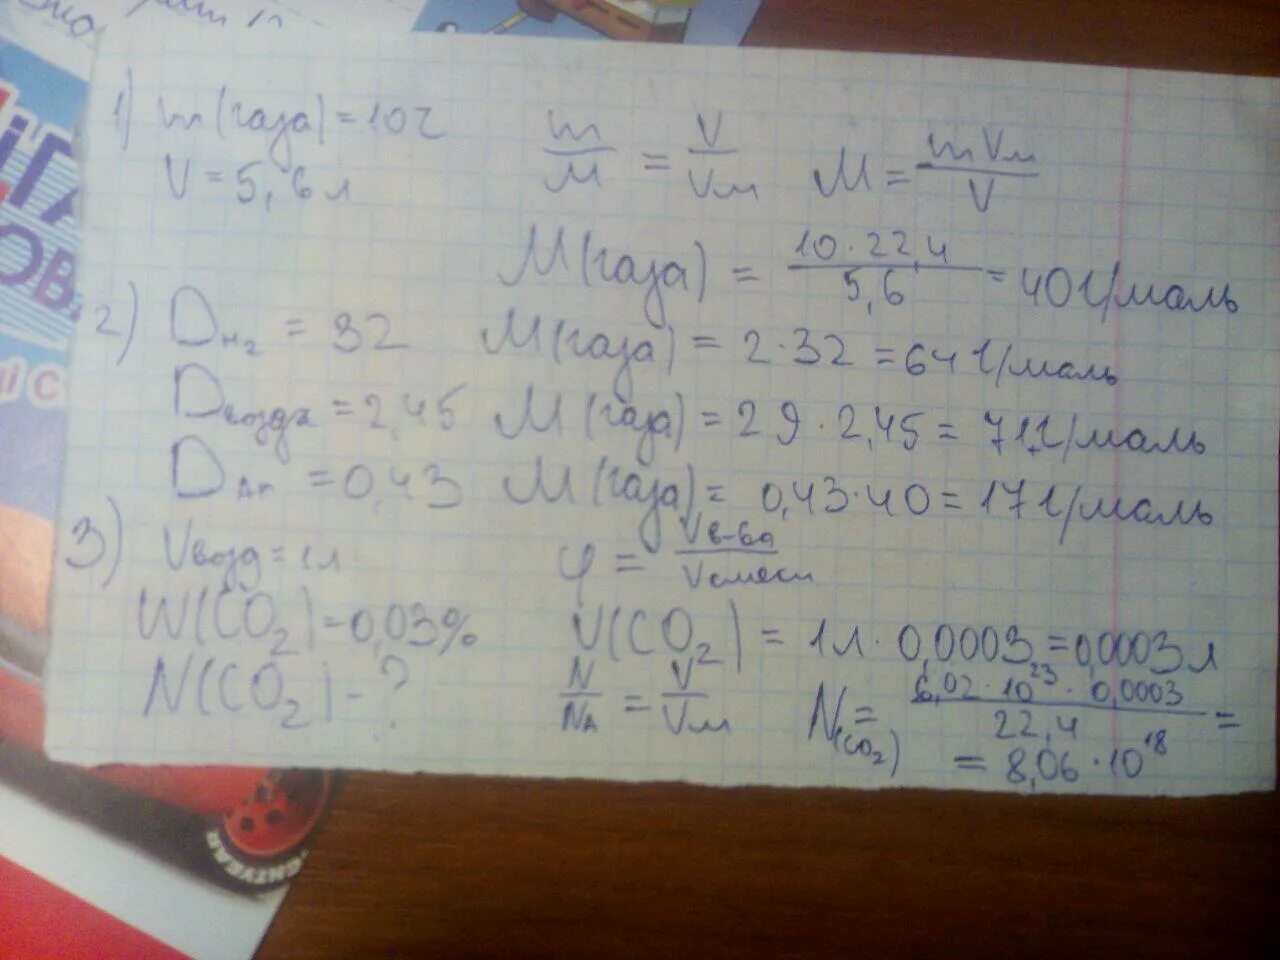 1) m(газа)=10г
V=5,6л
m/M = V/Vм M = mVм/V
M(газа) = 10·22,4/5,6 = 40г/моль
2) DH2 = 32 M(газа) = 2·32 = 64г/моль
Dвоздх = 2,45 M(газа) = 29·2,45 = 71г/моль
DAr = 0,43 M(газа) = 0,43·40 = 17г/моль
3) Vвозд = 1л φ = Vв-ва/Vсмеси
W(CO2) = 0,03% V(CO2) = 1л · 0,0003 = 0,0003л
N(CO2) - ? N/NA = V/Vм N(CO2) = 6,02·10^23·0,0003/22,4 =
= 8,06·10^18